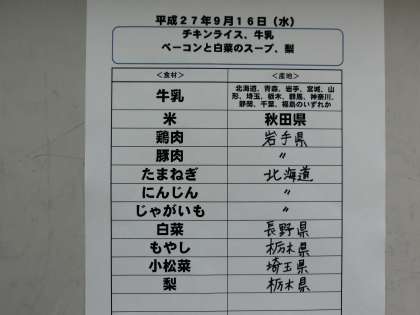 平成27年9月16日(水)
チキンライス、牛乳
ベーコンと白菜のスープ、梨
<食材> <産地>
牛乳 北海道、青森、岩手、宮城、山
形、埼玉、栃木、群馬、神奈川、
静岡、千葉、福島のいずれか
米 秋田県
鶏肉 岩手県
豚肉 〃
たまねぎ 北海道
にんじん 〃
じゃがいも 〃
白菜 長野県
もやし 栃木県
小松菜 埼玉県
梨 栃木県